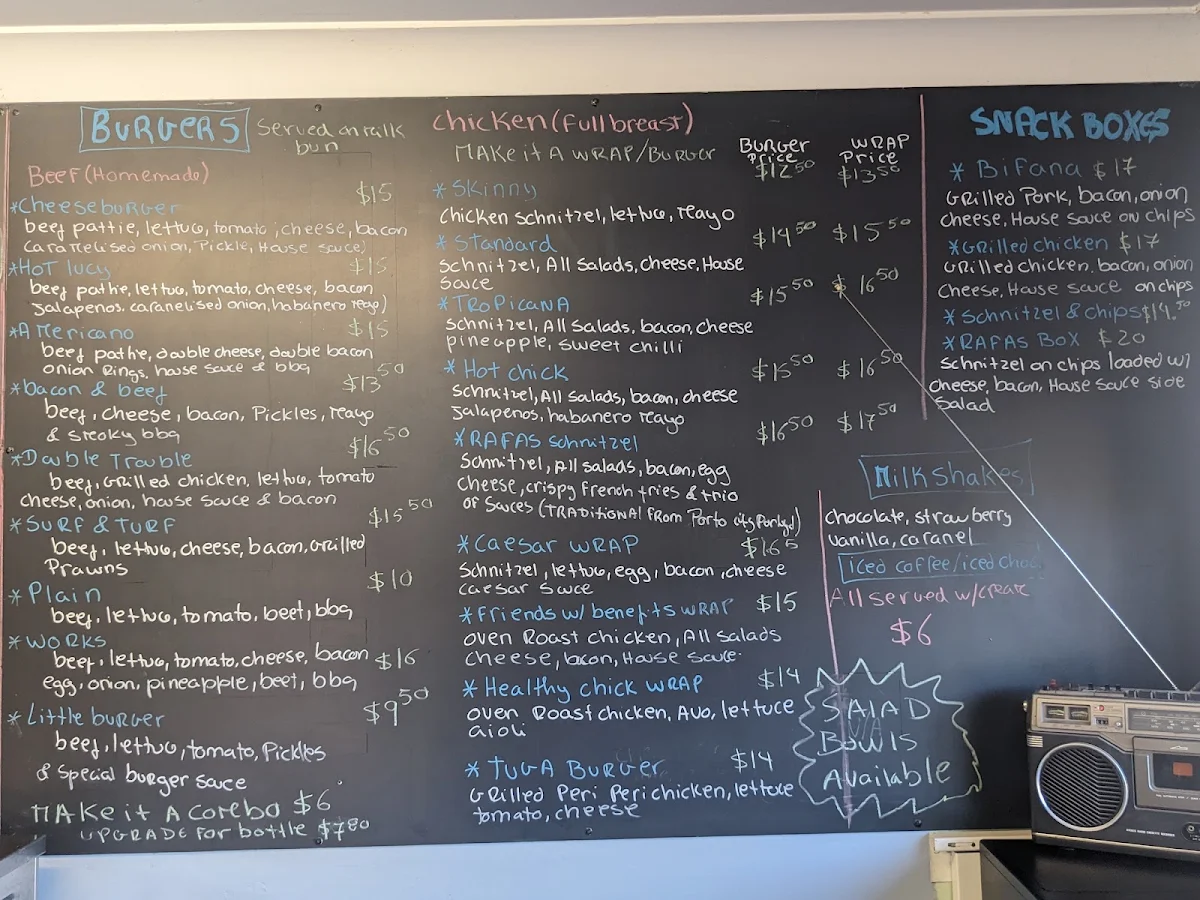 BURGERS Served on milk
bun
BEEF (Homemade)
*Cheeseburger $15
beef pattie, lettuce, tomato, cheese, bacon
caramelised onion, Pickle, House sauce)
*HOT lucy $15
beef pattie, lettuce, tomato, cheese, bacon
Jalapenos, caramelised onion, habanero mayo)
*AMericano $15
beef pattie, double cheese, double bacon
onion Rings, house sauce & bbq
*bacon & beef $13.50
beef, cheese, bacon, Pickles, mayo
& smoky bbq
*Double Trouble $16.50
beef, Grilled chicken, lettuce, tomato
cheese, onion, house sauce & bacon
*SURF & TURF $15.50
beef, lettuce, cheese, bacon, Grilled
Prawns
*Plain $10
beef, lettuce, tomato, beet, bbq
*WORKS $16
beef, lettuce, tomato, cheese, bacon
egg, onion, pineapple, beet, bbq
*Little burger $9.50
beef, lettuce, tomato, Pickles
& special burger sauce
MAKE it A COMBO $6
UPGRADE for bottle $7.80
chicken (full breast)
MAKE it A WRAP/BURGER
BURGER Price WRAP PRICE
*Skinny $12.50 $13.50
chicken schnitzel, lettuce, mayo
*Standard $14.50 $15.50
Schnitzel, All Salads, cheese, House
Sauce
*TROPICANA $15.50 $16.50
Schnitzel, All Salads, bacon, cheese
pineapple, sweet chilli
*Hot chick $15.50 $16.50
Schnitzel, All Salads, bacon, cheese
Jalapenos, habanero mayo
*RAFAS schnitzel $16.50 $17.50
Schnitzel, All salads, bacon, egg
cheese, crispy french fries & trio
of sauces (TRADITIONAL FROM Porto
*Caesar WRAP
Schnitzel, lettuce, egg, bacon, cheese
caesar sauce
*Friends w/ benefits WRAP $15
oven Roast chicken, All salads
cheese, bacon, House sauce
*Healthy chick WRAP $14
oven Roast chicken, Avo, lettuce
aioli
*TUGA BURGER $14
GRilled Peri Peri chicken, lettuce
tomato, cheese
SNACK BOXES
*BiFana $17
GRilled Pork, bacon, onion
cheese, House sauce on chips
*GRilled chicken $17
GRilled chicken, bacon, onion
cheese, House sauce on chips
*Schnitzel & chips $14.50
*RAFAS BOX $20
Schnitzel on chips loaded w/
cheese, bacon, House sauce side
Salad
Milkshakes
chocolate, strawberry
vanilla, caramel
iced coffee/iced choc
All served w/cream
$6
SALAD
BOWLS
Available